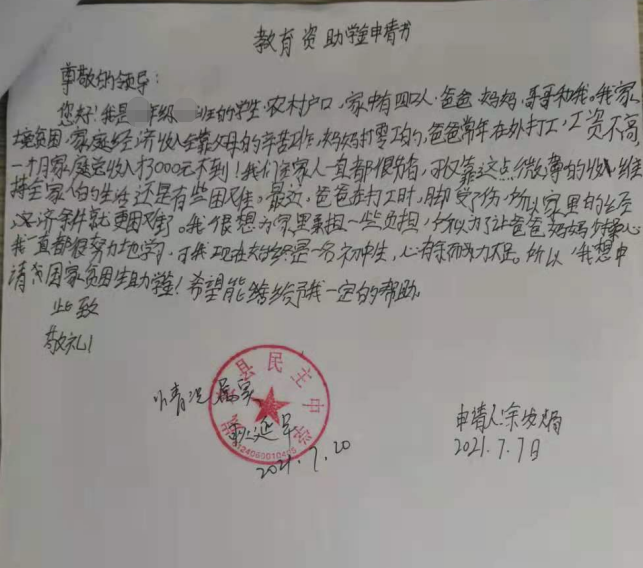 教育资助学金申请书
尊敬的领导：
您好！我是年级班的学生，农村户口，家中有四口人，爸爸、妈妈、哥哥和我。我家
贫困，家庭经济收入全靠父母的辛苦工作，妈妈打零工，爸爸常年在外打工，工资不高，
一个月家庭总收入3000元不到！我们全家人一直都很节省，可仅靠这点微薄的收入维
持全家人的生活还是有些困难。最近，爸爸在打工时，脚受了伤，所以家里的经
济条件就更困难了。我很想为家里承担一些负担，所以为了让爸爸妈妈
我一直都很努力地学习，可我现在是一名初中生，心有余而力不足。所以，我想申
请国家贫困生助学金！希望能够给予我一定的帮助。
此致
敬礼！
县民主中学
情况属实
延早
2021.7.20
申请人：余
2021.7.7日